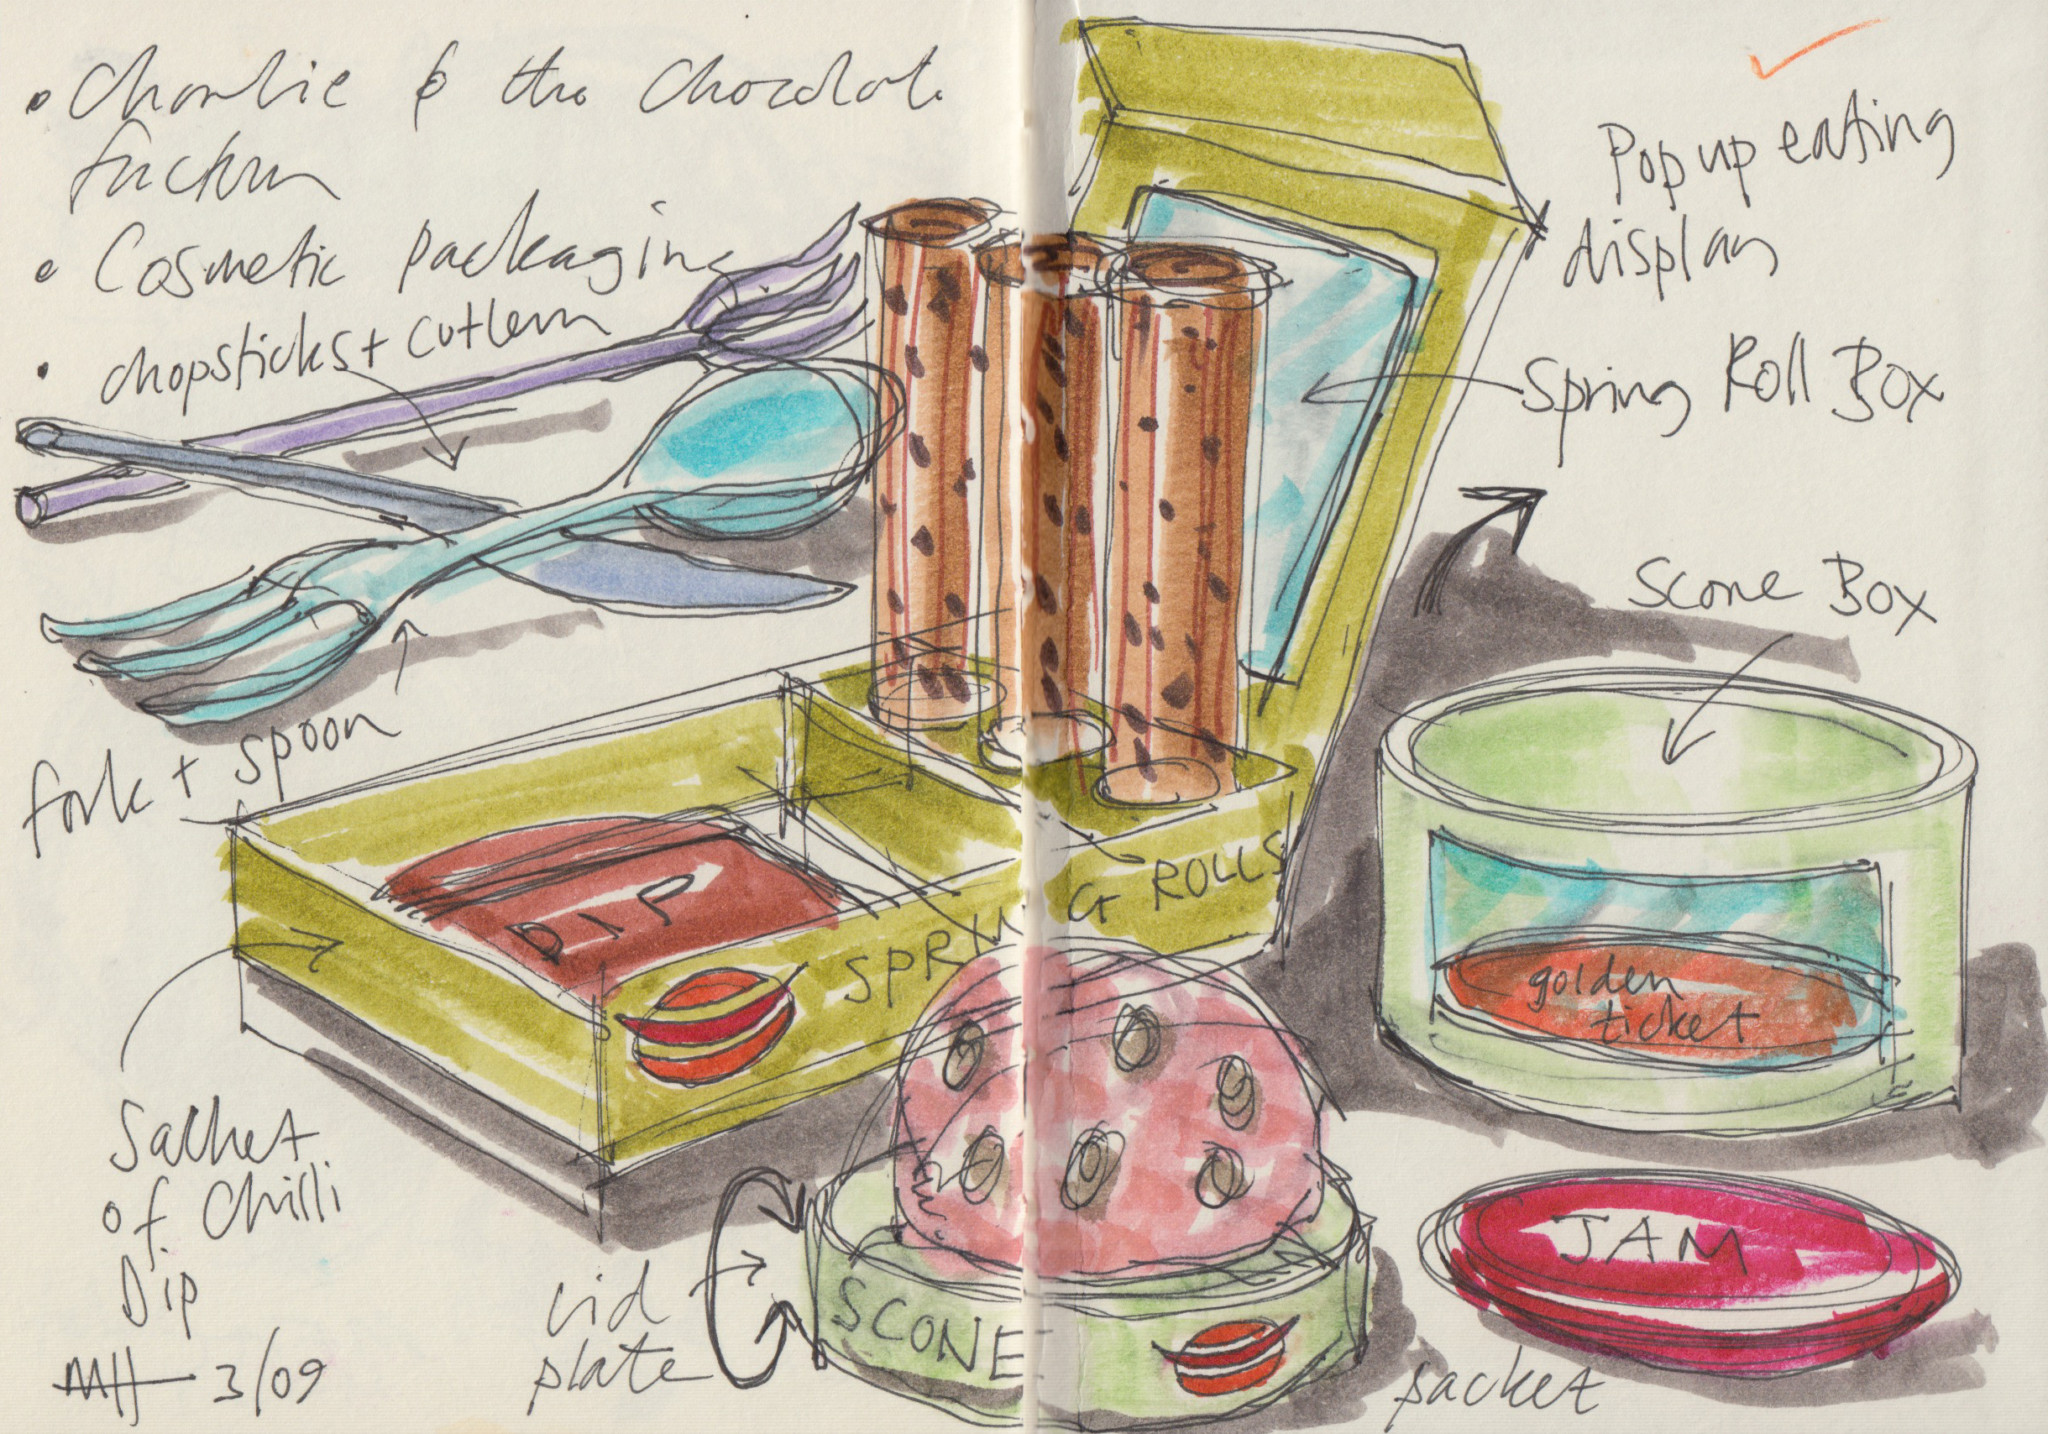 • Charlie & the Chocolate
factory
• Cosmetic packaging
• chopsticks + cutlery
fork + spoon
Pop up eating
display
Spring Roll Box
Scone Box
DIP
SPRING ROLLS
golden
ticket
Sachet
of Chilli
Dip
lid
plate
SCONE
JAM
packet
MH 3/09